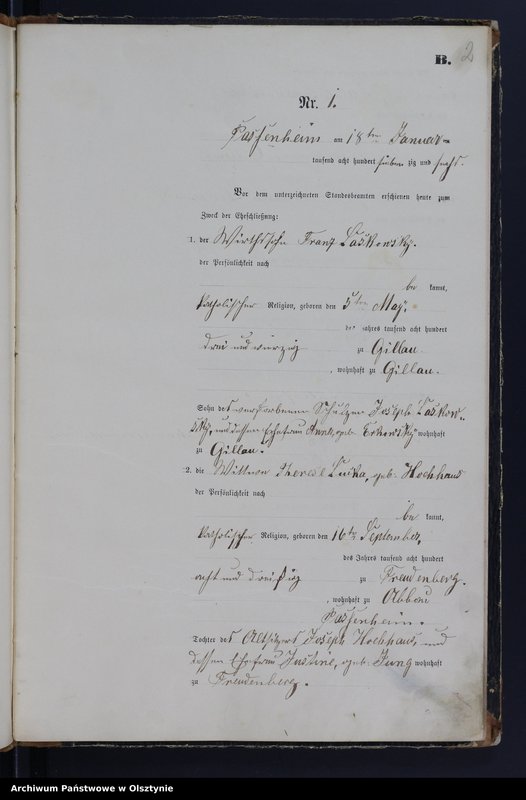 B. 2
Nr. 1.
Passenheim am 18ten Januar
tausend acht hundert siebenzig und sechs.
Vor dem unterzeichneten Standesbeamten erschienen heute zum
Zweck der Eheschließung:
1. der Wirthssohn Franz Laskowsky.
der Persönlichkeit nach
be kannt,
katholischer Religion, geboren den 5ten May
des Jahres tausend acht hundert
drei und vierzig zu Gillau
, wohnhaft zu Gillau.
Sohn des verstorbenen Schulzen Joseph Laskow-
sky, und dessen Ehefrau Anna, geb. wohnhaft
zu Gillau.
2. die Wittwe Therese geb. Hochhaus
der Persönlichkeit nach
be kannt,
katholischer Religion, geboren den 16ten September,
des Jahres tausend acht hundert
acht und dreißig zu Freudenberg.
, wohnhaft zu Abbau
Passenheim.
Tochter des Altsitzers Joseph Hochhaus, und
dessen Ehefrau Justine, geb. Jung wohnhaft
zu Freudenberg.
Archiwum Państwowe w Olsztynie